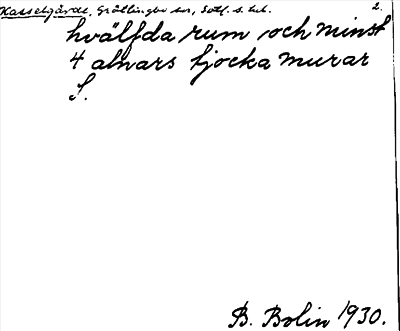 Kassekgärde, Grötlingbo sn, Gotl. s. hd. 2.
hvälfda rum och minst
4 alnars tjocka murar
S.
B. Bolin 1930.